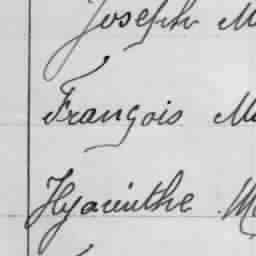 Joseph M
François Ma
Hyacinthe Ma